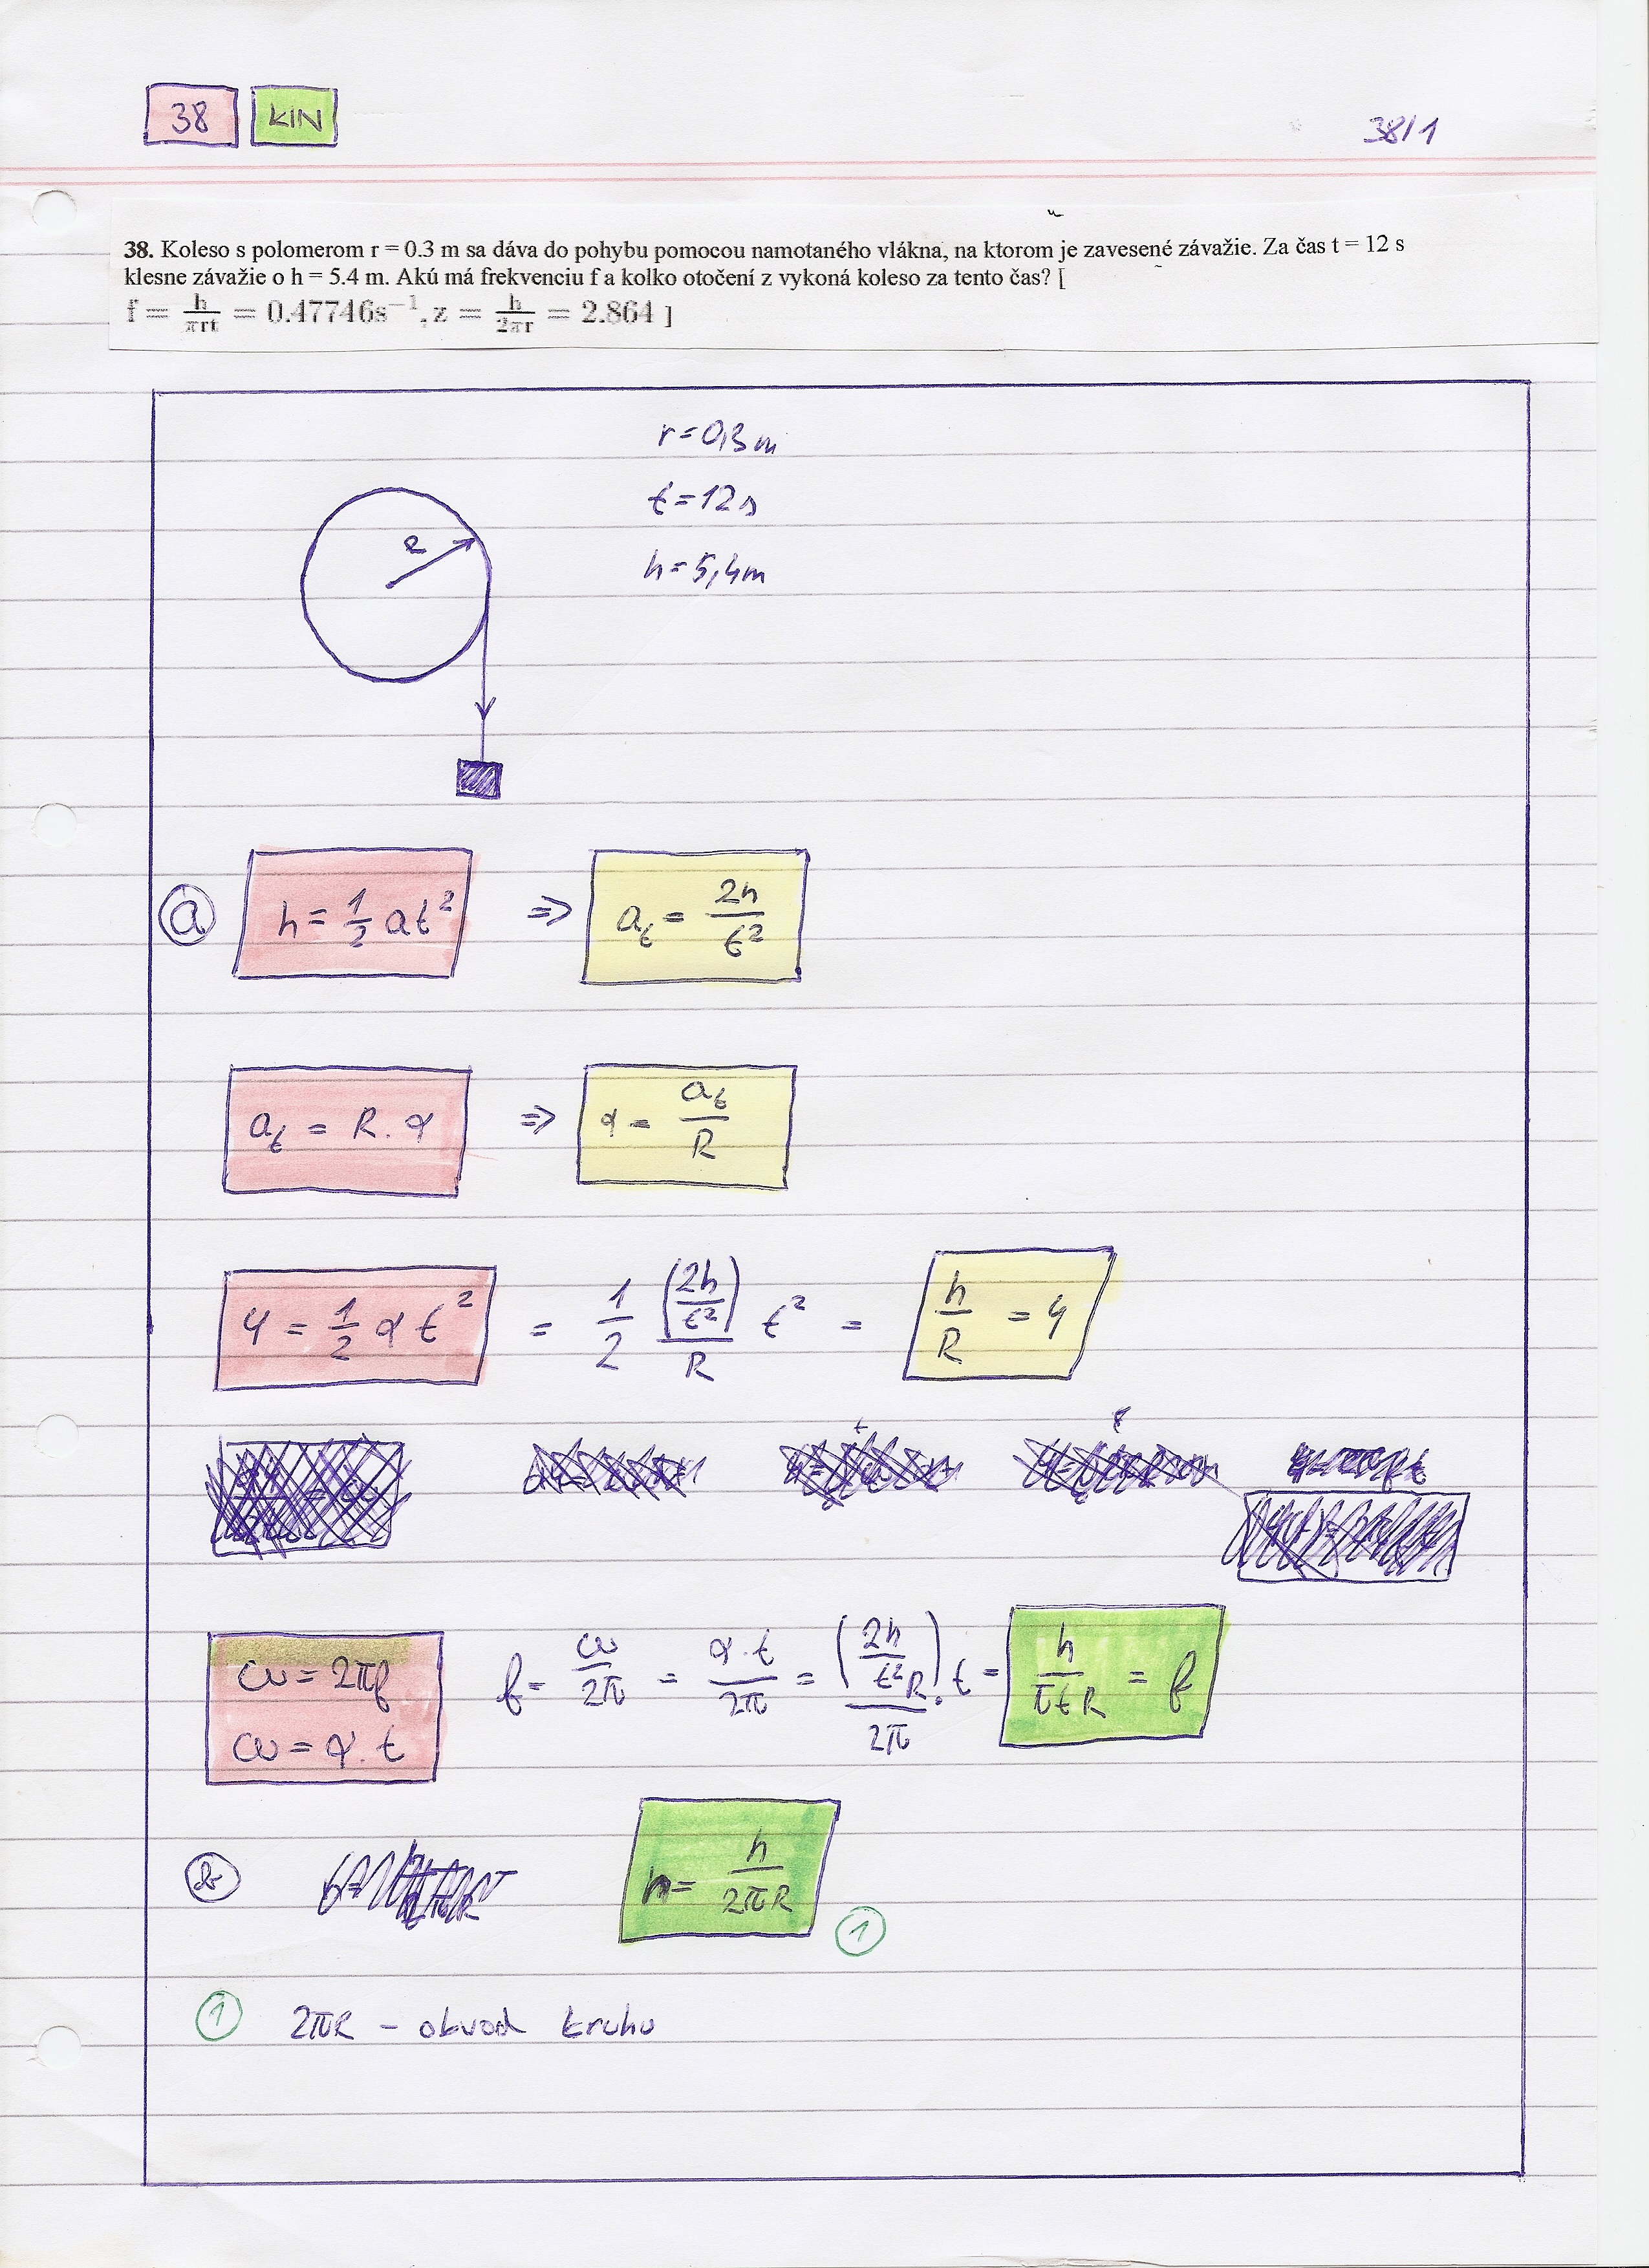 38 KIN 38/1
38. Koleso s polomerom r = 0.3 m sa dáva do pohybu pomocou namotaného vlákna, na ktorom je zavesené závažie. Za čas t = 12 s
klesne závažie o h = 5.4 m. Akú má frekvenciu f a kolko otočení z vykoná koleso za tento čas? [
f = h/πrt = 0.47746s⁻¹, z = h/2πr = 2.864 ]
r = 0,3m
t = 12s
h = 5,4m
R
a h = 1/2 at² => a_t = 2h/t²
a_t = R . α => α = a_t/R
φ = 1/2 α t² = 1/2 (2h/t²)/R t² = h/R = φ
ω = 2πf f = ω/2π = α.t/2π = (2h/t²R).t/2π = h/πtR = f
ω = α . t
b n = h/2πR 1
1 2πR - obvod kruhu